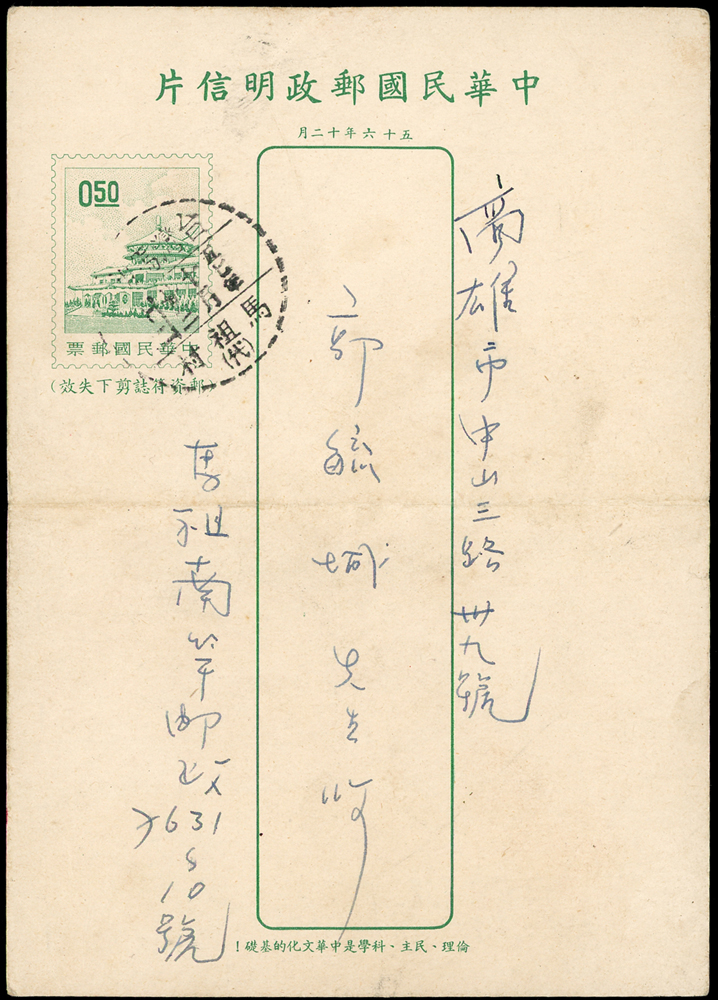 中華民國郵政明信片
五十六年十二月
050
中華民國郵票
(郵資符誌剪下失效)
馬祖
村(代)
高雄市中山三路卅九號
郭毓城先生
馬祖南竿郵政
631
10號
倫理、民主、科學是中華文化的基礎！